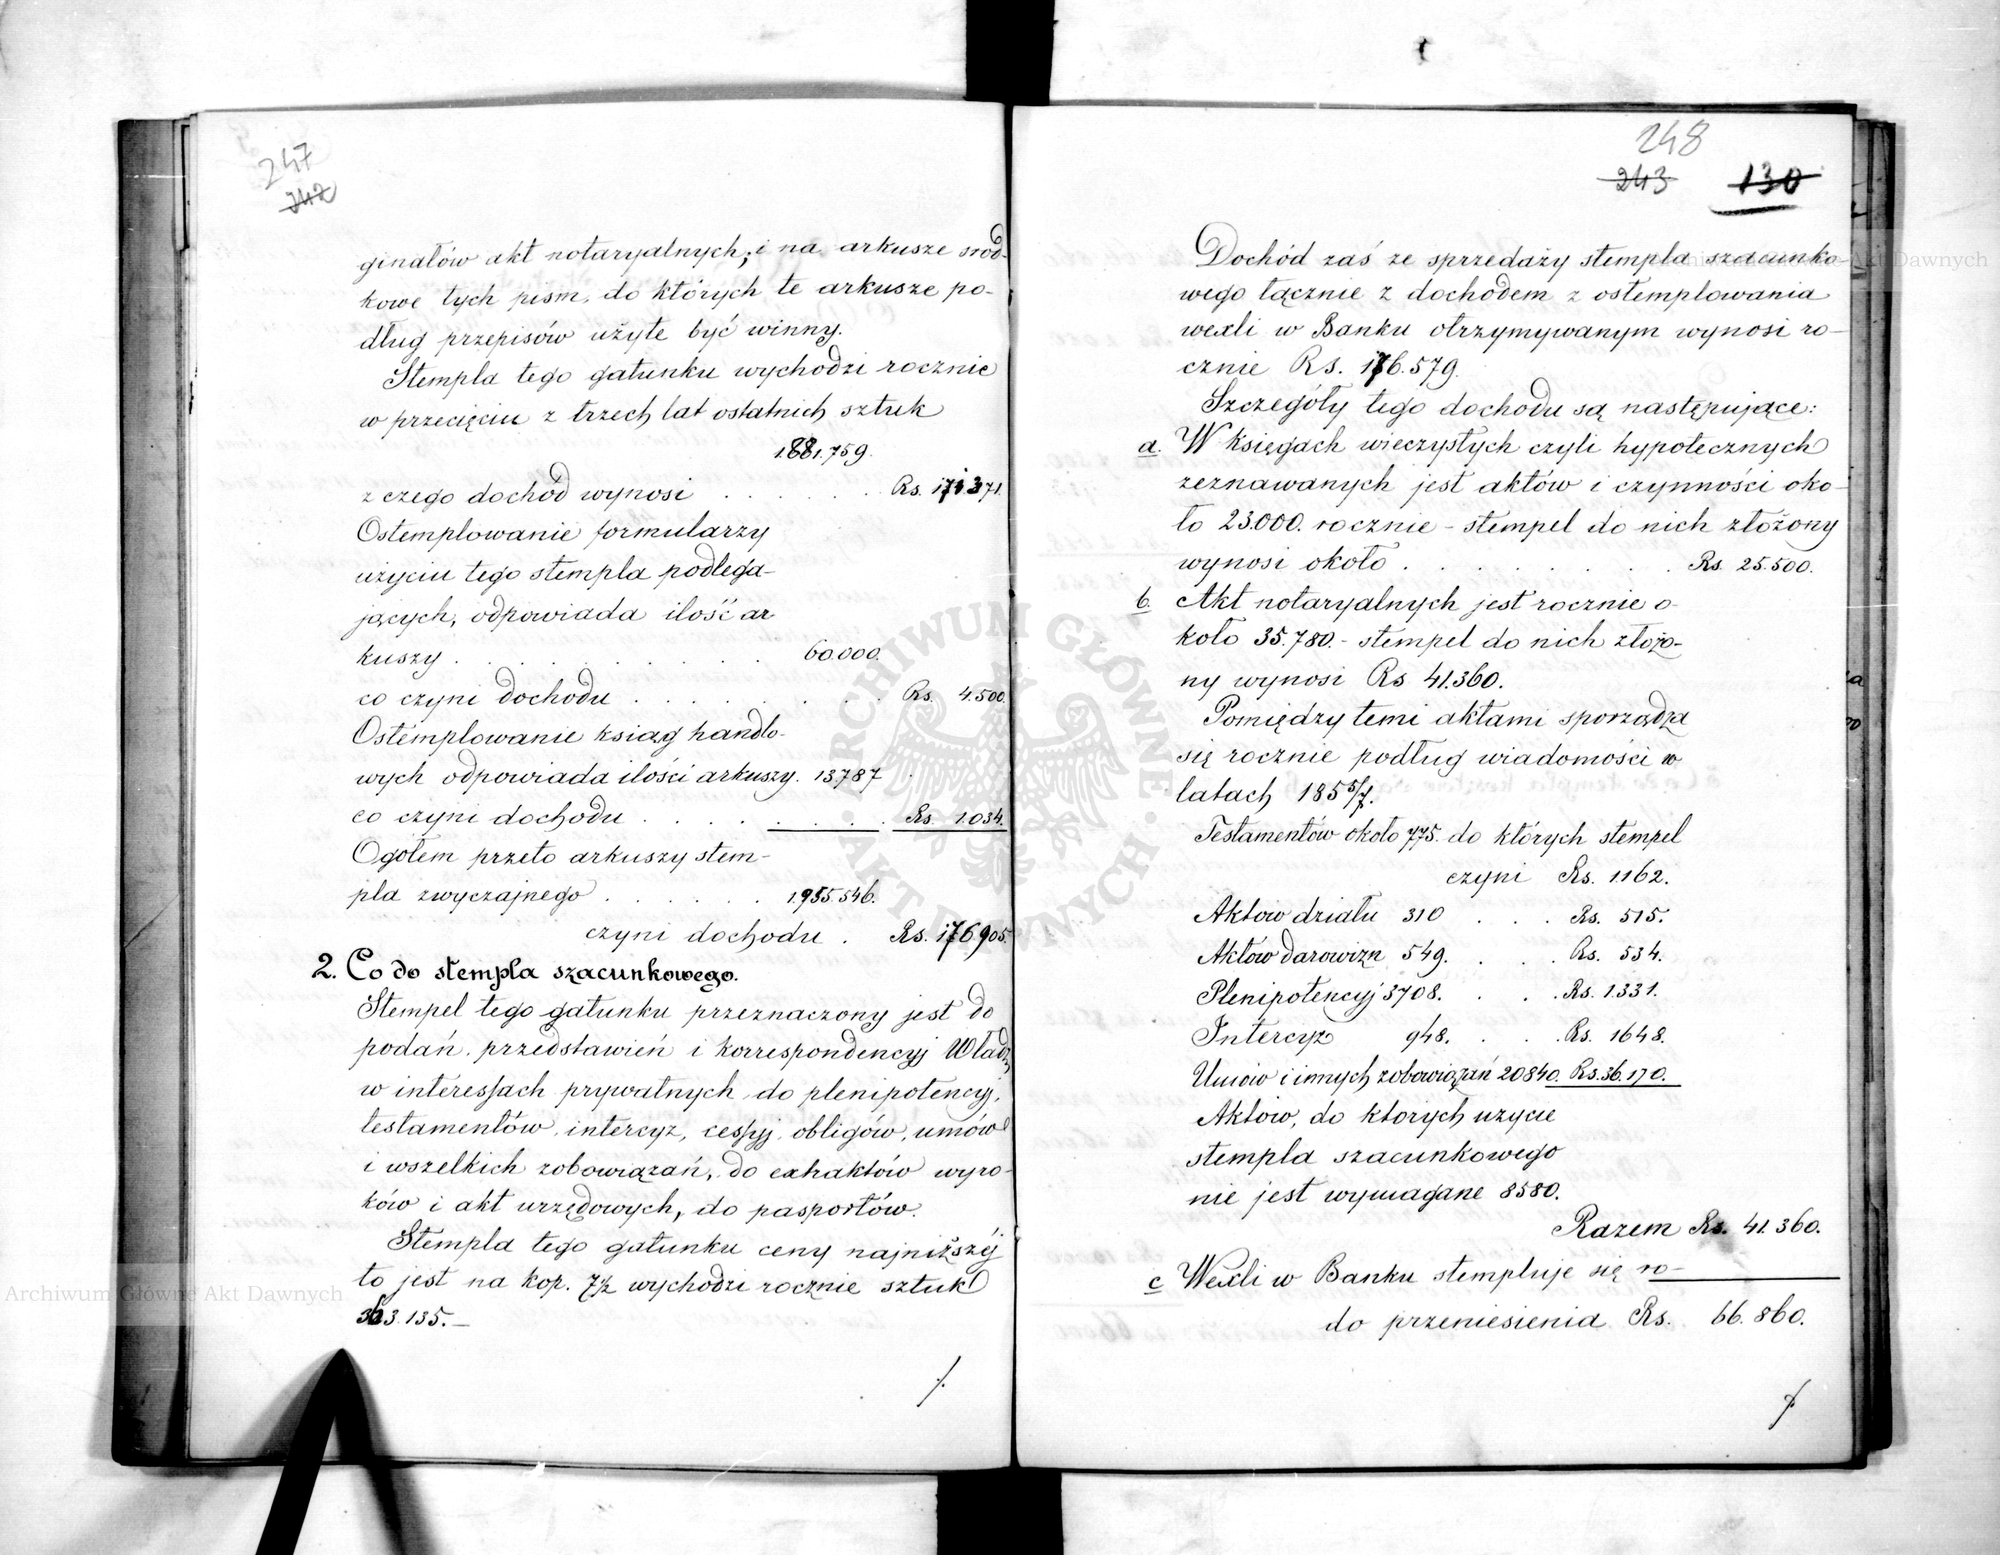 247
242
ginałów akt notaryalnych, i na arkusze srod-
kowe tych pism, do których te arkusze po-
dług przepisów użyte być winny.
Stempla tego gatunku wychodzi rocznie
w przecięciu z trzech lat ostatnich sztuk
1.881.759.
z czego dochód wynosi . . . . . . Rs. 171.371.
Ostemplowanie formularzy
użyciu tego stempla podlega-
jących, odpowiada ilość ar
kuszy . . . . . . . . 60.000.
co czyni dochodu . . . . . . . Rs. 4.500.
Ostemplowanie ksiąg handlo-
wych odpowiada ilości arkuszy. 13.787
co czyni dochodu . . . . . . . Rs. 1.034.
Ogółem przeto arkuszy stem-
pla zwyczajnego . . . . . . 1.955.546.
czyni dochodu . Rs. 176.905.
2. Co do stempla szacunkowego.
Stempel tego gatunku przeznaczony jest do
podań, przedstawień i korrespondencyj Władz,
w interessach prywatnych, do plenipotencyj,
testamentów, intercyz, cessyj, obligów, umów
i wszelkich zobowiązań, do extraktów wyro-
ków i akt urzędowych, do pasportów.
Stempla tego gatunku ceny najniższéj
to jest na kop. 7½ wychodzi rocznie sztuk
363.135.—
/.
248
243 130
Dochód zaś ze sprzedaży stempla szacunko-
wego łącznie z dochodem z ostemplowania
wexli w Banku otrzymywanym wynosi ro-
cznie Rs. 176.579.
Szczegóły tego dochodu są następujące:
a. W księgach wieczystych czyli hypotecznych
zeznawanych jest aktów i czynności oko-
ło 23.000. rocznie - stempel do nich złożony
wynosi około . . . . . . . . Rs. 25.500.
b. Akt notaryalnych jest rocznie o-
koło 35.780. - stempel do nich złożo-
ny wynosi Rs 41.360.
Pomiędzy temi aktami sporządza
się rocznie podług wiadomości w
latach 185 5/7.
Testamentów około 775. do których stempel
czyni Rs. 1162.
Aktów działu 310 . . . Rs. 515.
Aktów darowizn 549. . . . Rs. 534.
Plenipotencyj 3708. . . . Rs. 1.331.
Intercyz 948. . . . Rs. 1648.
Umów i innych zobowiązań 20840. Rs. 36.170.
Aktów, do których użycie
stempla szacunkowego
nie jest wymagane 8580.
Razem Rs. 41.360.
c Wexli w Banku stempluje się ro-
do przeniesienia Rs. 66.860.
/.
Archiwum Główne Akt Dawnych
ARCHIWUM GŁÓWNE AKT DAWNYCH